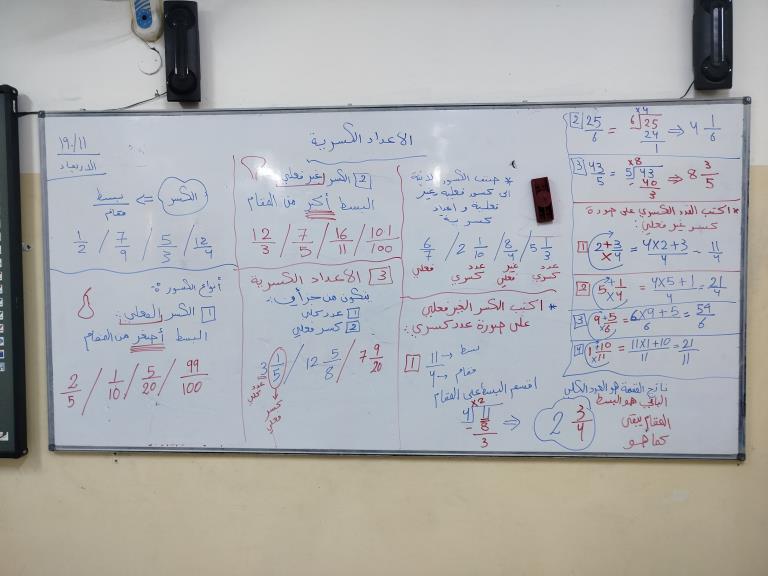 الأعداد الكسرية
١٩/١١
الأربعاء
الكسر ⇐ بسط / مقام
1/2 / 7/9 / 5/3 / 12/4
أنواع الكسور :
1 الكسر الفعلي :
البسط أصغر من المقام
2/5 / 1/10 / 5/20 / 99/100
2 الكسر غير فعلي :
البسط أكبر من المقام
12/3 / 7/5 / 16/11 / 101/100
3 الأعداد الكسرية
يتكون من جزأين :
1 عدد كلي
2 كسر فعلي
3 1/5 / 12 5/8 / 7 9/20
عدد كلي
كسر فعلي
* صنف الكسور الآتية
الى كسور فعلية وغير
فعلية و اعداد
كسرية :
6/7 / 2 1/10 / 8/4 / 5 1/3
فعلي
عدد كسري
غير فعلي
عدد كسري
* اكتب الكسر الغير فعلي
على صورة عدد كسري :
1 11/4
بسط
مقام
اقسم البسط على المقام
×2
4 11
- 8
3
⇒ 2 3/4
2 25/6 =
×4
6 25
24
1
⇒ 4 1/6
3 43/5 =
×8
5 43
- 40
3
⇒ 8 3/5
* اكتب العدد الكسري على صورة
كسر غير فعلي :
1 2 + 3/4 × = 4×2+3/4 = 11/4
2 5 + 1/4 × = 4×5+1/4 = 21/4
3 9 + 5/6 × = 6×9+5/6 = 59/6
4 1 + 10/11 × = 11×1+10/11 = 21/11
ناتج القسمة هو العدد الكلي
الباقي هو البسط
المقام يبقى
كما هو